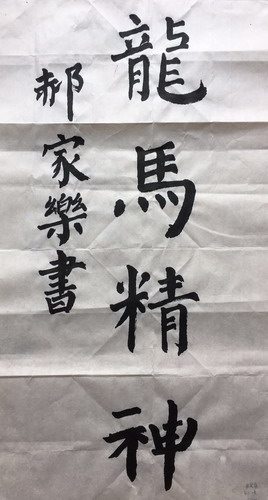 龍馬精神
郝家樂書